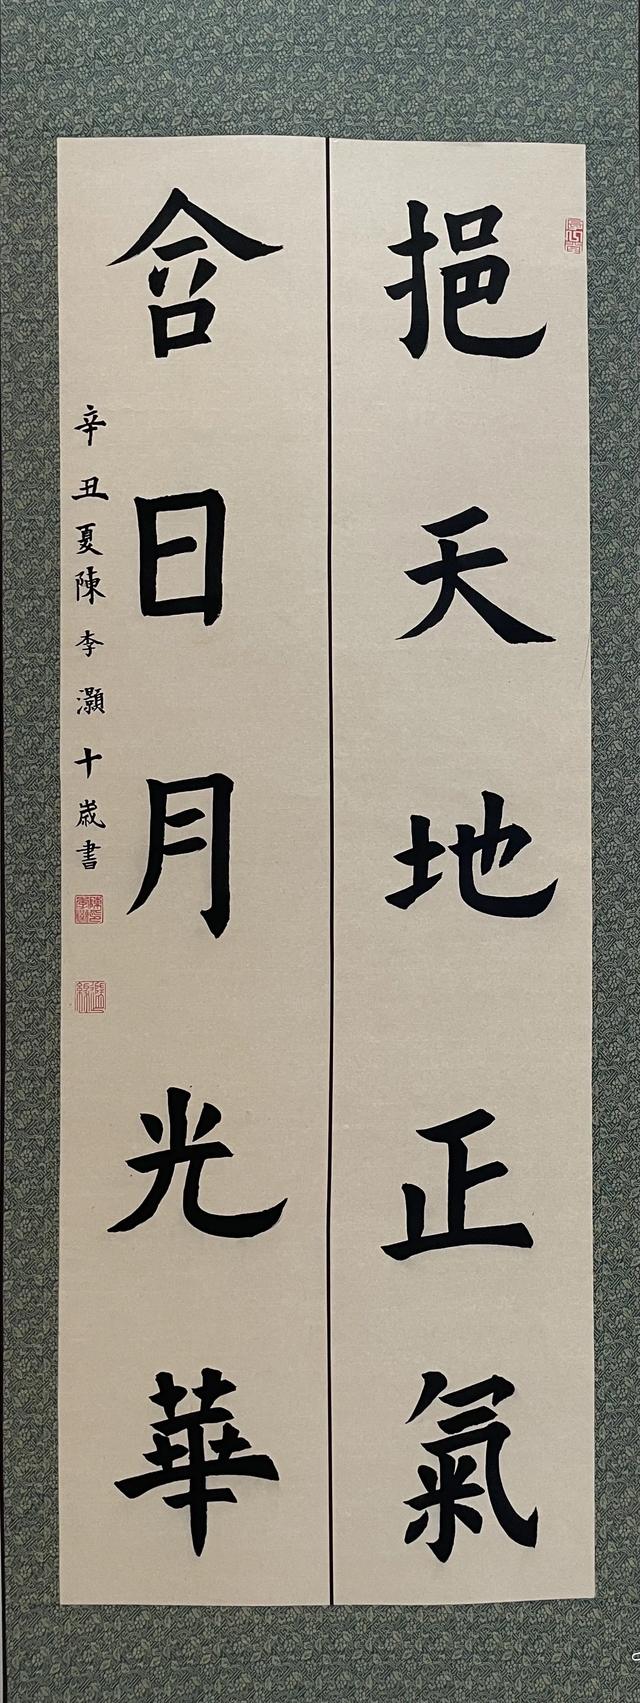 挹天地正氣
含日月光華
辛丑夏陳李灝十歲書